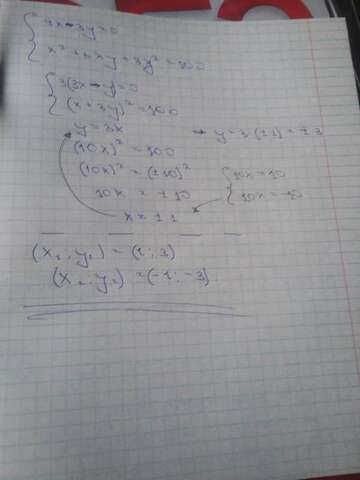 x² + 6xy + 9y² = 100
3(3x - y) = 0
(x + 3y)² = 100
y = 3x → y = 3·(±1) = ±3
(10x)² = 100
(10x)² = (±10)²
10x = ±10
10x = 10
10x = -10
x = ±1
(x₁; y₁) = (1; 3)
(x₂; y₂) = (-1; -3).